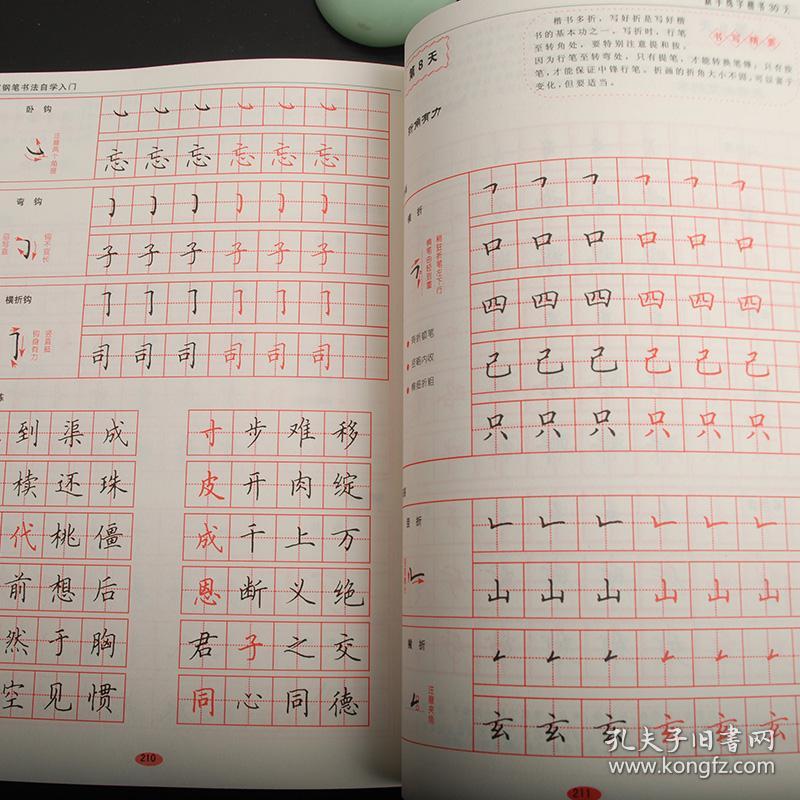 钢笔书法自学入门
卧钩
忘忘忘忘忘忘
弯钩
子子子子子子
横折钩
司司司司司司
到渠成
椟还珠
代桃僵
前想后
然于胸
空见惯
寸步难移
皮开肉绽
成千上万
恩断义绝
君子之交
同心同德
210
新手练字楷书30天
第8天
折角有力
书写精要
楷书多折,写好折是写好楷
书的基本功之一。写折时,行笔
至转角处,要特别注意提和按,
因为行笔至转弯处,只有提笔,才能转换笔锋;只有按
笔,才能保证中锋行笔。折画的折角大小不同,可以富于
变化,但要适当。
横折
稍驻折笔左下行
横笔由轻到重
口口口口口口
四四四四四四
己己己己己己
只只只只只只
竖折
山山山山山山
撇折
注意夹角
玄玄玄玄玄玄
211
孔夫子旧书网
www.kongfz.com